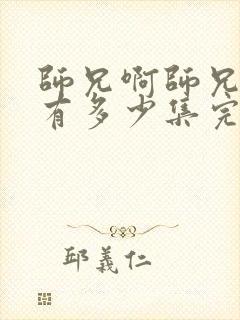 師兄啊師兄
有多少集完
邱義仁